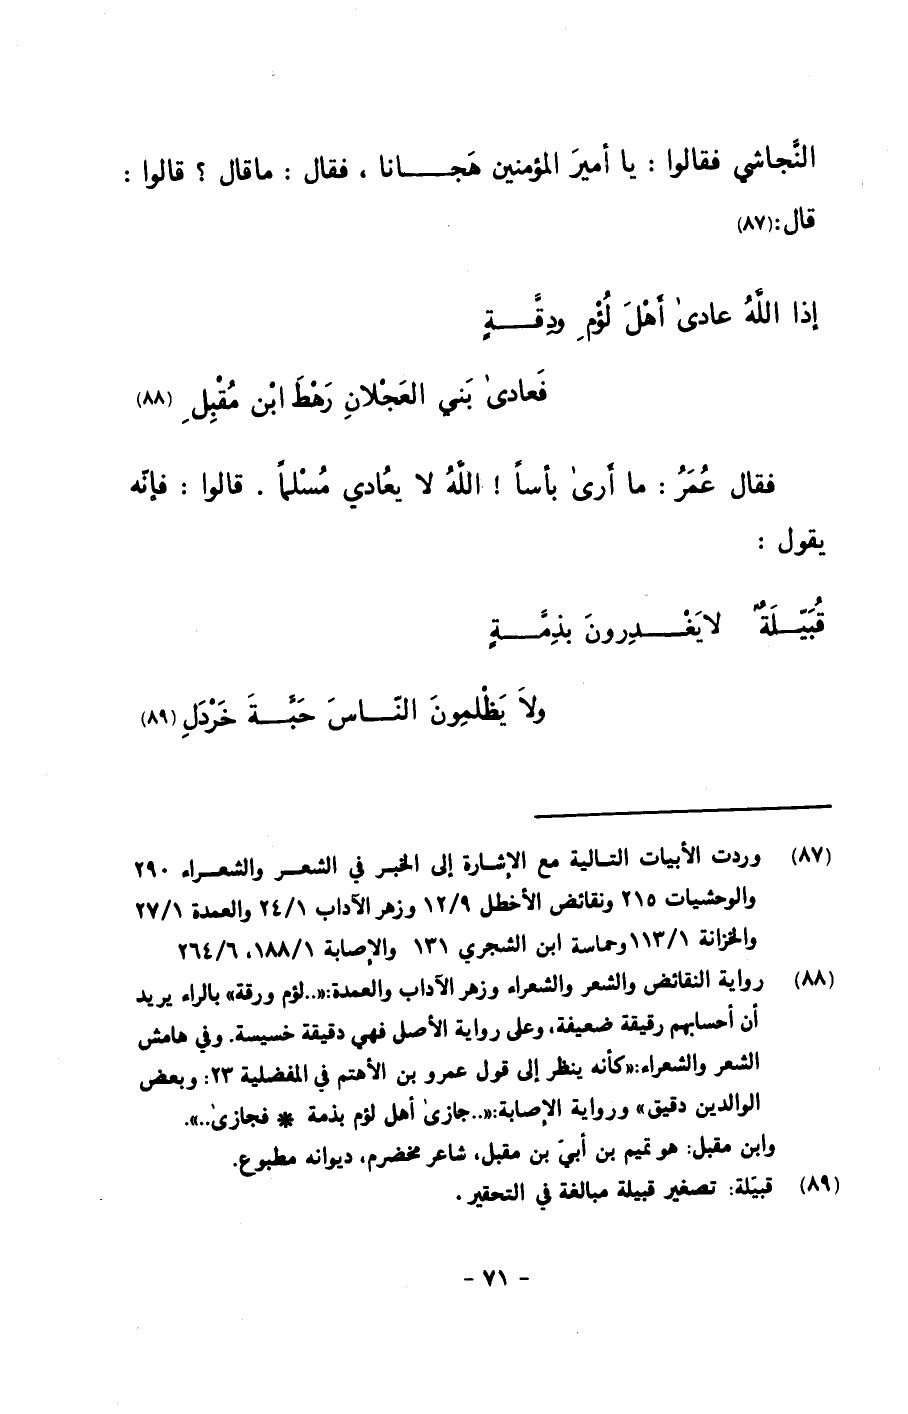 النَّجاشي فقالوا : يا أميرَ المؤمنين هَجـــــانا ، فقال : ماقال ؟ قالوا :
قال:(٨٧)
إذا اللَّهُ عادىٰ أَهْلَ لُؤْمٍ ودِقَّـــــةٍ
فَعادىٰ بَني العَجْلانِ رَهْطَ ابْن مُقْبِلِ (٨٨)
فقال عُمَرُ : ما أَرىٰ بأساً ! اللَّهُ لا يعُادي مُسْلماً . قالوا : فإنّه
يقول :
قُبَيّـــلَةٌ لايَغْـــــدِرونَ بذِمَّـــــةٍ
ولاَ يَظْلمِونَ النّـــاسَ حَبَّـــةَ خَرْدَلِ (٨٩)
(٨٧) وردت الأبيات التـالية مع الإشـارة إلى الخبـر في الشعـر والشعـراء ٢٩٠
والوحشيات ٢١٥ ونقائض الأخطل ١٢/٩ وزهر الآداب ٢٤/١ والعمدة ٢٧/١
والخزانة ١١٣/١ وحماسة ابن الشجري ١٣١ والإصابة ١٨٨/١، ٢٦٤/٦
(٨٨) رواية النقائض والشعر والشعراء وزهر الآداب والعمدة:«..لؤم ورقة» بالراء يريد
أن أحسابهم رقيقة ضعيفة، وعلى رواية الأصل فهي دقيقة خسيسة. وفي هامش
الشعر والشعراء:«كأنه ينظر إلى قول عمرو بن الأهتم في المفضلية ٢٣: وبعض
الوالدين دقيق» ورواية الإصابة:«..جازىٰ أهل لؤم بذمة * فجازىٰ..».
وابن مقبل: هو تميم بن أبيّ بن مقبل، شاعر مخضرم، ديوانه مطبوع.
(٨٩) قبيّلة: تصغير قبيلة مبالغة في التحقير .
- ٧١ -